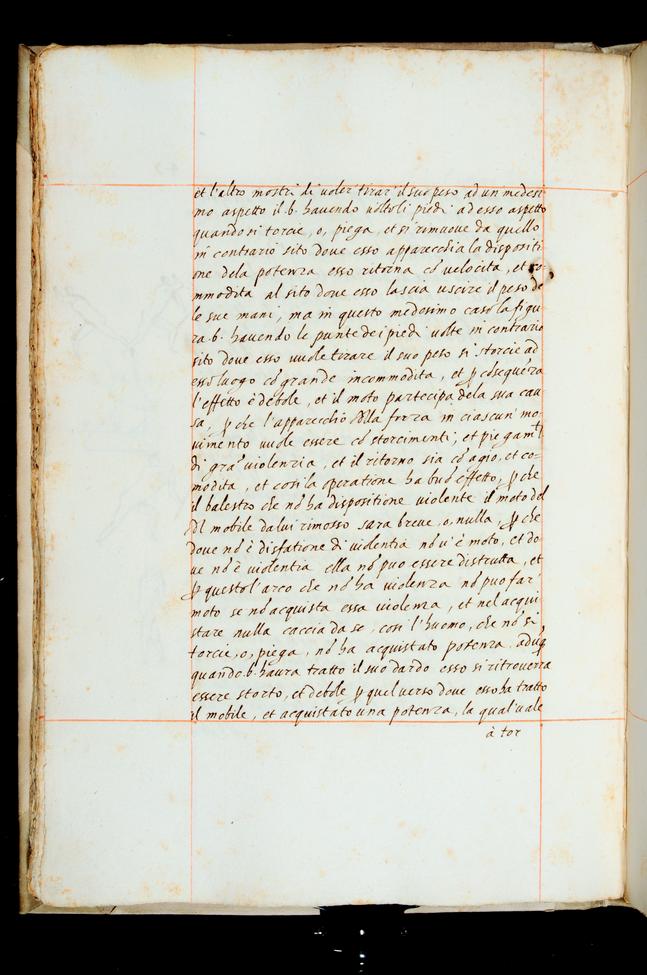 et l'altro mostri di voler tirar il suo peso ad un medesi
mo aspetto il .b. havendo volto li piedi ad esso aspetto
quando si torcie, o, piega, et si rimuove da quello
in contrario sito dove esso apparecchia la dispositi
one dela potenza esso ritorna cō velocita, et co-
mmodita al sito dove esso lascia uscire il peso de
le sue mani, ma in questo medesimo caso la figu
ra .b. havendo le punte dei piedi volte in contrario
sito dove esso vuole tirare il suo peso si storcie ad
esso luogo cō grande incommodita, et ꝑ cōsequēza
l'effetto è debole, et il moto partecipa dela sua cau
sa, ꝑ che l'apparecchio della forza in ciascun mo-
vimento vuole essere cō storcimenti, et piegamti
di grā violenzia, et il ritorno sia cō agio, et co-
modita, et cosi la operatione ha buō effetto, ꝑ che
il balestro che nō ha dispositione violente il moto del
dl mobile da lui rimosso sara breve, o, nulla, ꝑ che
dove nō è disfatione di violentia nō v'è moto, et do
ve nō è violentia ella nō puo essere distrutta, et
ꝑ questo l'arco che nō ha violenza nō puo far
moto se nō acquista essa violenza, et nel acqui
stare nulla caccia da se, cosi l'huomo, che nō si
torcie, o, piega, nō ha acquistato potenza, aduq̄
quando .b. haura tratto il suo dardo esso si ritroverra
essere storto, et debole ꝑ quel verso dove esso ha tratto
il mobile, et acquistato una potenza, la qual vale
à tor